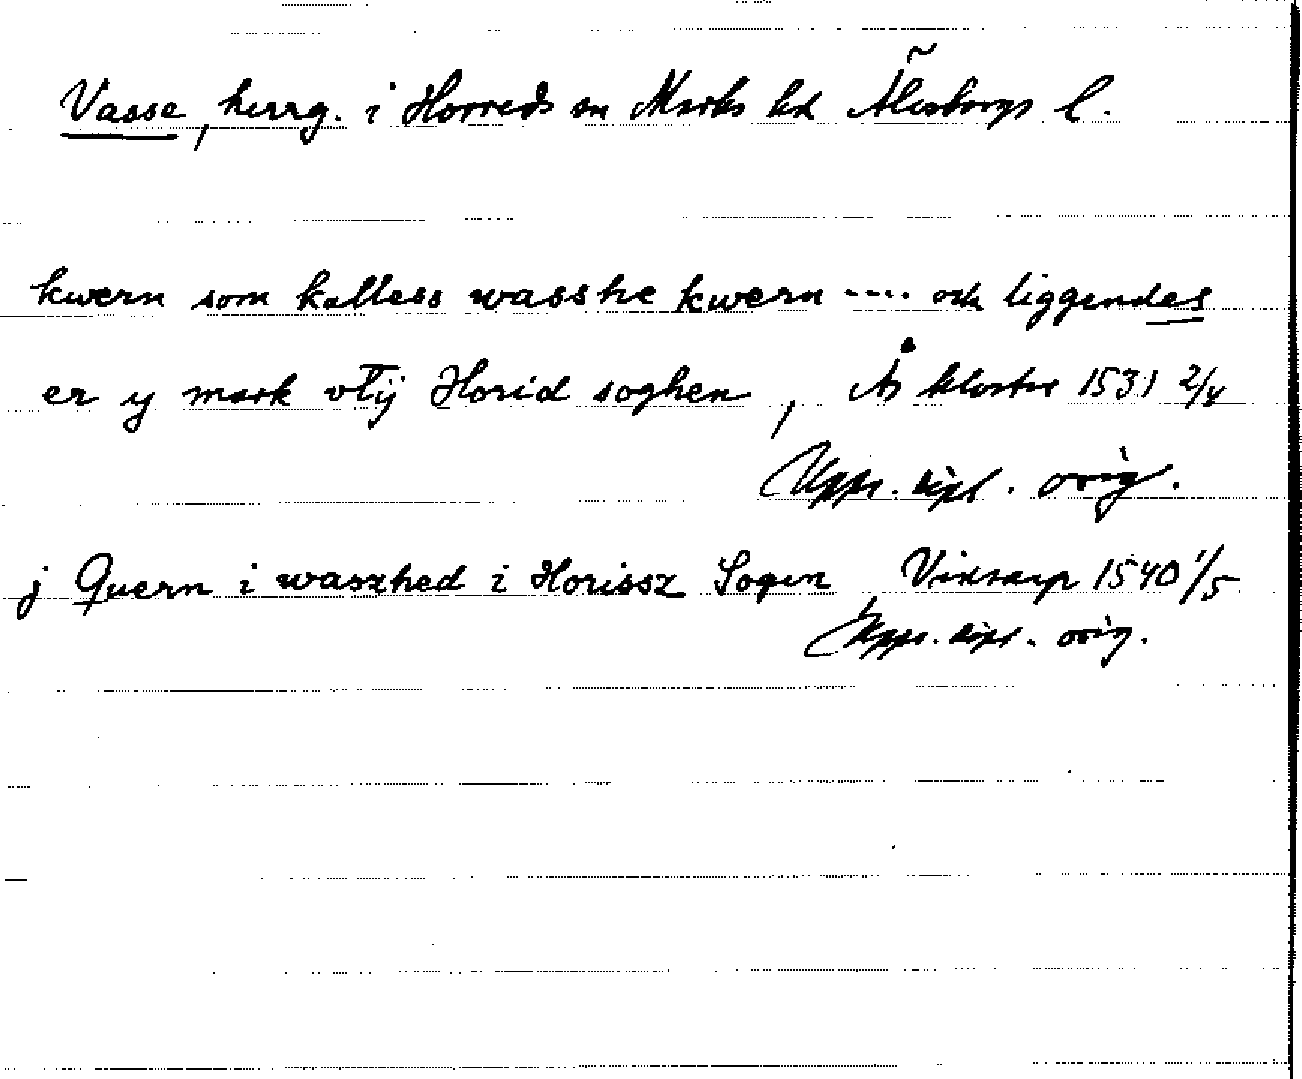 Vasse, herrg. i Horreds sn Marks hd Älvsborgs l.
kwern som kalless wasshe kwern .... och liggendes
er y mark vtij Horid soghen, Ås kloster 1531 2/4
Upps. dipl. orig.
j Quern i waszhed i Horissz Sogen Vinstorp 1540 1/5
Upps. dipl. orig.